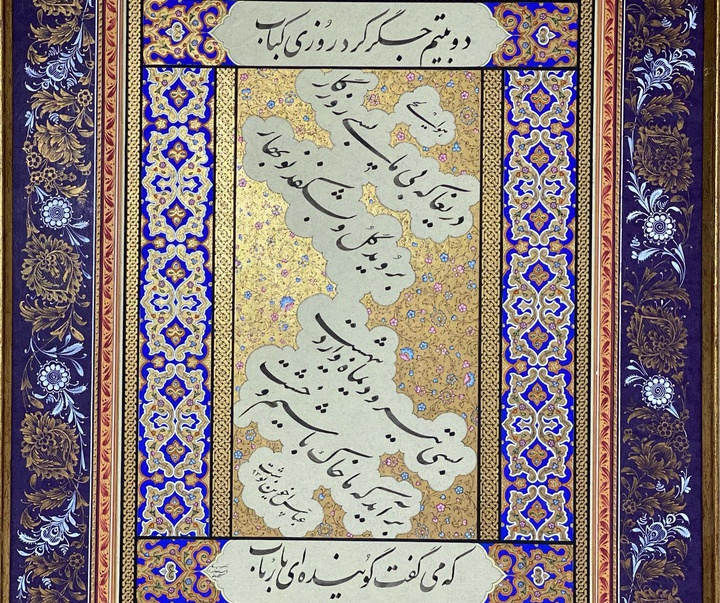 دو بیتم جگر کرد روزی کباب
دریغا که بی ما بسی روزگار
بروید گل و بشکفد نوبهار
بسی تیر و دیماه و اردیبهشت
برآید که ما خاک باشیم و خشت
عباس اخوین نوشت
که می گفت گوینده ای با رباب